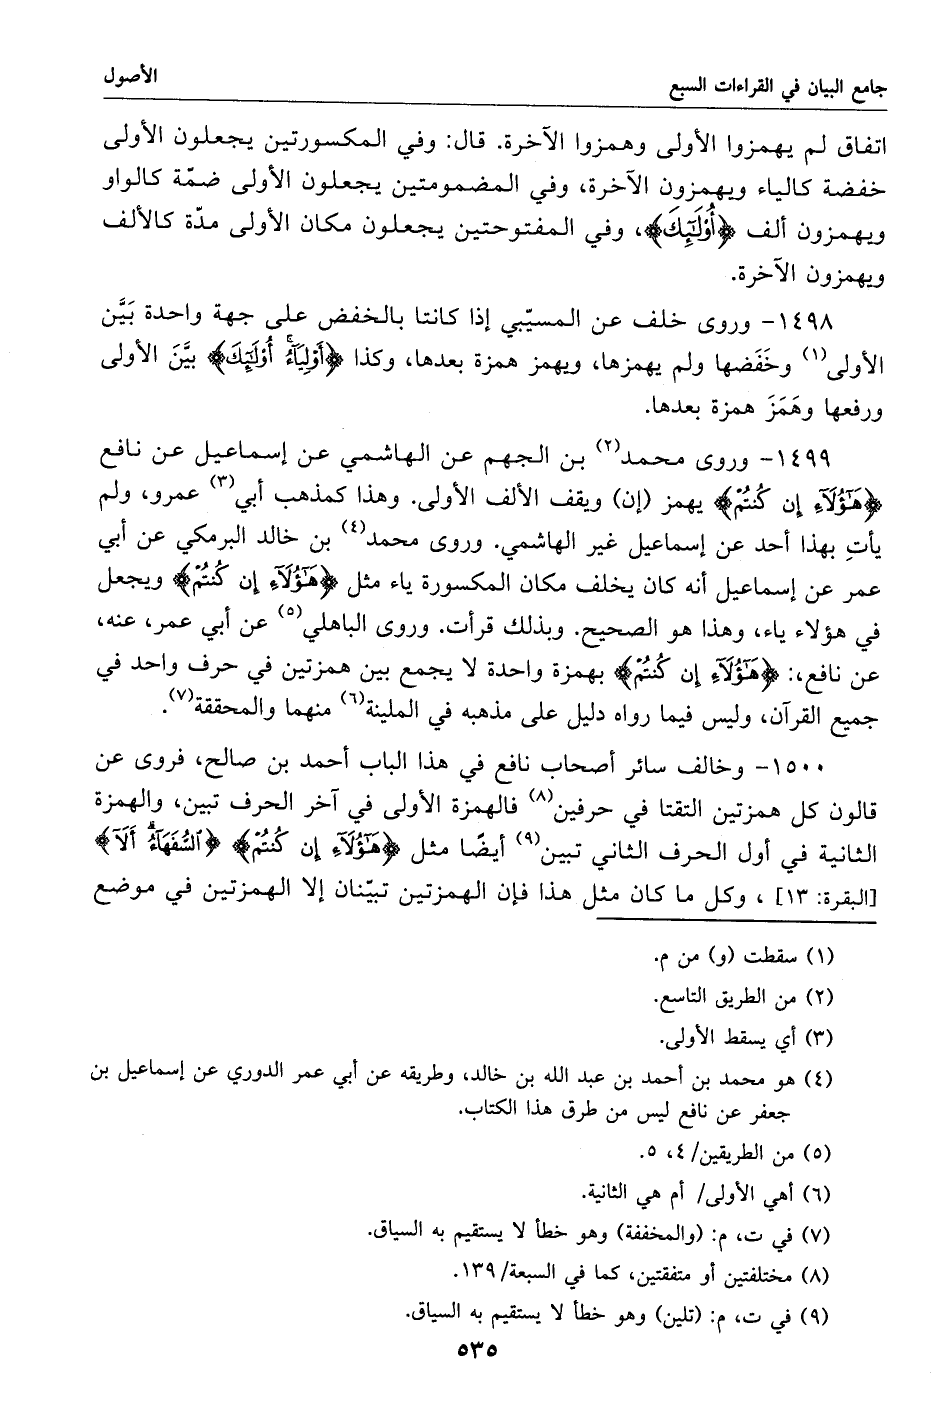 جامع البيان في القراءات السبع
الأصول
اتفاق لم يهمزوا الأولى وهمزوا الآخرة. قال: وفي المكسورتين يجعلون الأولى
خفضة كالياء ويهمزون الآخرة، وفي المضمومتين يجعلون الأولى ضمّة كالواو
ويهمزون ألف ﴿أُوْلَـٰٓئِكَ﴾، وفي المفتوحتين يجعلون مكان الأولى مدّة كالألف
ويهمزون الآخرة.
١٤٩٨- وروى خلف عن المسيّبي إذا كانتا بالخفض على جهة واحدة بَيَّن
الأولى(١) وخَفَضها ولم يهمزها، ويهمز همزة بعدها، وكذا ﴿أَوْلِيَآءُۚ أُوْلَـٰٓئِكَ﴾ بيَّن الأولى
ورفعها وهَمَزَ همزة بعدها.
١٤٩٩- وروى محمد(٢) بن الجهم عن الهاشمي عن إسماعيل عن نافع
﴿هَـٰٓؤُلَآءِ إِن كُنتُمْ﴾ يهمز (إن) ويقف الألف الأولى. وهذا كمذهب أبي(٣) عمرو، ولم
يأتِ بهذا أحد عن إسماعيل غير الهاشمي. وروى محمد(٤) بن خالد البرمكي عن أبي
عمر عن إسماعيل أنه كان يخلف مكان المكسورة ياء مثل ﴿هَـٰٓؤُلَآءِ إِن كُنتُمْ﴾ ويجعل
في هؤلاء ياء، وهذا هو الصحيح. وبذلك قرأت. وروى الباهلي(٥) عن أبي عمر، عنه،
عن نافع،: ﴿هَـٰٓؤُلَآءِ إِن كُنتُمْ﴾ بهمزة واحدة لا يجمع بين همزتين في حرف واحد في
جميع القرآن، وليس فيما رواه دليل على مذهبه في الملينة(٦) منهما والمحققة(٧).
١٥٠٠- وخالف سائر أصحاب نافع في هذا الباب أحمد بن صالح، فروى عن
قالون كل همزتين التقتا في حرفين(٨) فالهمزة الأولى في آخر الحرف تبين، والهمزة
الثانية في أول الحرف الثاني تبين(٩) أيضًا مثل ﴿هَـٰٓؤُلَآءِ إِن كُنتُمْ﴾ ﴿ٱلسُّفَهَآءُۗ أَلَآ﴾
[البقرة: ١٣] ، وكل ما كان مثل هذا فإن الهمزتين تبيّنان إلا الهمزتين في موضع
(١) سقطت (و) من م.
(٢) من الطريق التاسع.
(٣) أي يسقط الأولى.
(٤) هو محمد بن أحمد بن عبد الله بن خالد، وطريقه عن أبي عمر الدوري عن إسماعيل بن
جعفر عن نافع ليس من طرق هذا الكتاب.
(٥) من الطريقين/ ٤، ٥.
(٦) أهي الأولى/ أم هي الثانية.
(٧) في ت، م: (والمخففة) وهو خطأ لا يستقيم به السياق.
(٨) مختلفتين أو متفقتين، كما في السبعة/ ١٣٩.
(٩) في ت، م: (تلين) وهو خطأ لا يستقيم به السياق.
٥٣٥